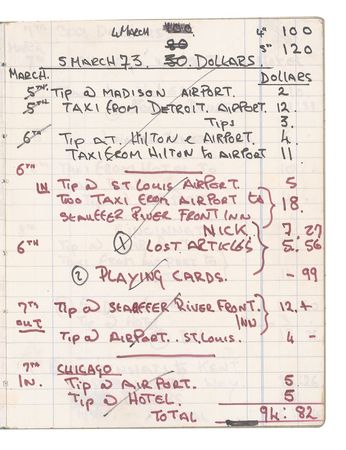 4 MARCH 4TH 100
80 5TH 120
5 MARCH 73. 50. DOLLARS.
MARCH. DOLLARS
5TH. TIP @ MADISON AIRPORT. 2
5TH. TAXI FROM DETROIT. AIRPORT. 12.
TIPS 3.
6TH TIP AT. HILTON & AIRPORT. 4.
TAXI FROM HILTON to AIRPORT 11
6TH
IN TIP @ ST LOUIS AIRPORT. 5
TWO TAXI FROM AIRPORT to 18.
STAUFFER RIVER FRONT INN
NICK. 7. 27
6TH 1 LOST ARTICLES 5. 56
2 PLAYING CARDS. - 99
7TH TIP @ STAUFFER RIVER FRONT. 12. +
OUT INN
TIP @ AIRPORT.. ST. LOUIS. 4 -
7TH CHICAGO
IN. TIP @ AIRPORT. 5
TIP @ HOTEL. 5
TOTAL 94: 82